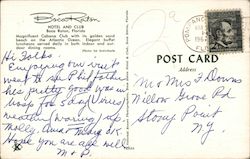 Boca Raton
HOTEL AND CLUB
Boca Raton, Florida
Magnificent Cabana Club with its golden sand
beach on the Atlantic Ocean. Elegant buffet
luncheons served daily in both indoor and out-
door dining rooms.
POST CARD
Hi Folks.
Enjoying our visit
went to see Phil
he's pretty good was in
hosp for 5 days (Virus)
weather warming up.
Molly, Anna May O.K.
Hope you are all well
M + B.
Mr + Mrs F Downs
Willow Grove Rd
Stony Point
N.Y.